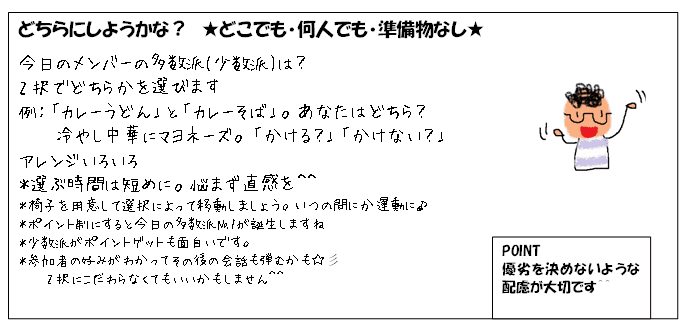 どちらにしようかな？　★どこでも・何人でも・準備物なし★
今日のメンバーの多数派(少数派)は？
2択でどちらかを選びます
例：「カレーうどん」と「カレーそば」。あなたはどちら？
冷やし中華にマヨネーズ。「かける？」「かけない？」
アレンジいろいろ
*選ぶ時間は短めに。悩まず直感を^^
*椅子を用意して選択によって移動しましょう。いつの間にか運動に♪
*ポイント制にすると今日の多数派No.1が誕生しますね
*少数派がポイントゲットも面白いです。
*参加者の好みがわかってその後の会話も弾むかも☆彡
2択にこだわらなくてもいいかもしません^^
POINT
優劣を決めないような
配慮が大切です^^